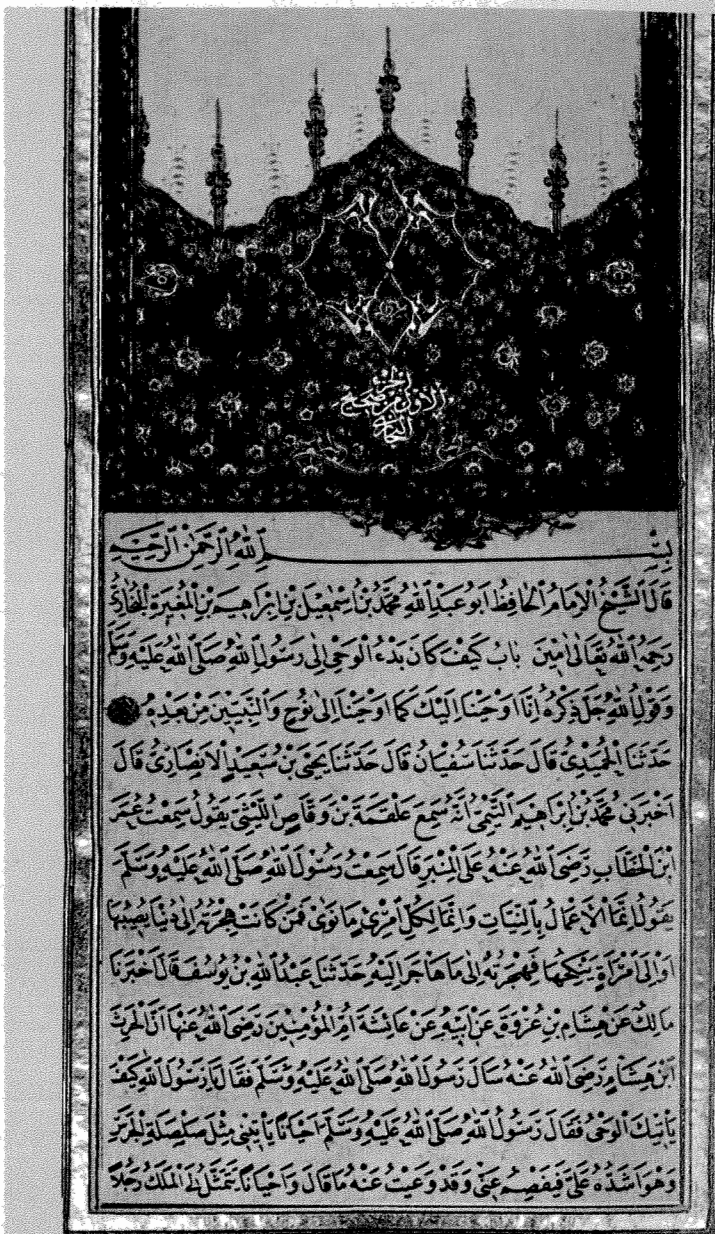 الجزء
الاول من صحيح
البخاري
بِسْمِ اللّٰهِ الرَّحْمٰنِ الرَّحِيمِ
قَالَ الشَّيْخُ الْاِمَامُ الْحَافِظُ اَبُو عَبْدِ اللّٰهِ مُحَمَّدُ بْنُ اِسْمٰعِيلَ بْنِ اِبْرَاهِيمَ بْنِ الْمُغِيرَةِ الْبُخَارِيُّ
رَحِمَهُ اللّٰهُ تَعَالٰى اٰمِينَ بَابُ كَيْفَ كَانَ بَدْءُ الْوَحْيِ اِلٰى رَسُولِ اللّٰهِ صَلَّى اللّٰهُ عَلَيْهِ وَسَلَّمَ
وَقَوْلِ اللّٰهِ جَلَّ ذِكْرُهُ اِنَّا اَوْحَيْنَا اِلَيْكَ كَمَا اَوْحَيْنَا اِلٰى نُوحٍ وَالنَّبِيّٖنَ مِنْ بَعْدِهِ
حَدَّثَنَا الْحُمَيْدِيُّ قَالَ حَدَّثَنَا سُفْيَانُ قَالَ حَدَّثَنَا يَحْيَى بْنُ سَعِيدٍ الْاَنْصَارِيُّ قَالَ
اَخْبَرَنِي مُحَمَّدُ بْنُ اِبْرَاهِيمَ التَّيْمِيُّ اَنَّهُ سَمِعَ عَلْقَمَةَ بْنَ وَقَّاصٍ اللَّيْثِيَّ يَقُولُ سَمِعْتُ عُمَرَ
ابْنَ الْخَطَّابِ رَضِيَ اللّٰهُ عَنْهُ عَلَى الْمِنْبَرِ قَالَ سَمِعْتُ رَسُولَ اللّٰهِ صَلَّى اللّٰهُ عَلَيْهِ وَسَلَّمَ
يَقُولُ اِنَّمَا الْاَعْمَالُ بِالنِّيَّاتِ وَاِنَّمَا لِكُلِّ امْرِئٍ مَا نَوٰى فَمَنْ كَانَتْ هِجْرَتُهُ اِلٰى دُنْيَا يُصِيبُهَا
اَوْ اِلَى امْرَأَةٍ يَنْكِحُهَا فَهِجْرَتُهُ اِلٰى مَا هَاجَرَ اِلَيْهِ حَدَّثَنَا عَبْدُ اللّٰهِ بْنُ يُوسُفَ قَالَ اَخْبَرَنَا
مَالِكٌ عَنْ هِشَامِ بْنِ عُرْوَةَ عَنْ اَبِيهِ عَنْ عَائِشَةَ اُمِّ الْمُؤْمِنِينَ رَضِيَ اللّٰهُ عَنْهَا اَنَّ الْحٰرِثَ
ابْنَ هِشَامٍ رَضِيَ اللّٰهُ عَنْهُ سَاَلَ رَسُولَ اللّٰهِ صَلَّى اللّٰهُ عَلَيْهِ وَسَلَّمَ فَقَالَ يَا رَسُولَ اللّٰهِ كَيْفَ
يَأْتِيكَ الْوَحْيُ فَقَالَ رَسُولُ اللّٰهِ صَلَّى اللّٰهُ عَلَيْهِ وَسَلَّمَ اَحْيَانًا يَأْتِينِي مِثْلَ صَلْصَلَةِ الْجَرَسِ
وَهُوَ اَشَدُّهُ عَلَيَّ فَيَفْصِمُ عَنِّي وَقَدْ وَعَيْتُ عَنْهُ مَا قَالَ وَاَحْيَانًا يَتَمَثَّلُ لِيَ الْمَلَكُ رَجُلًا